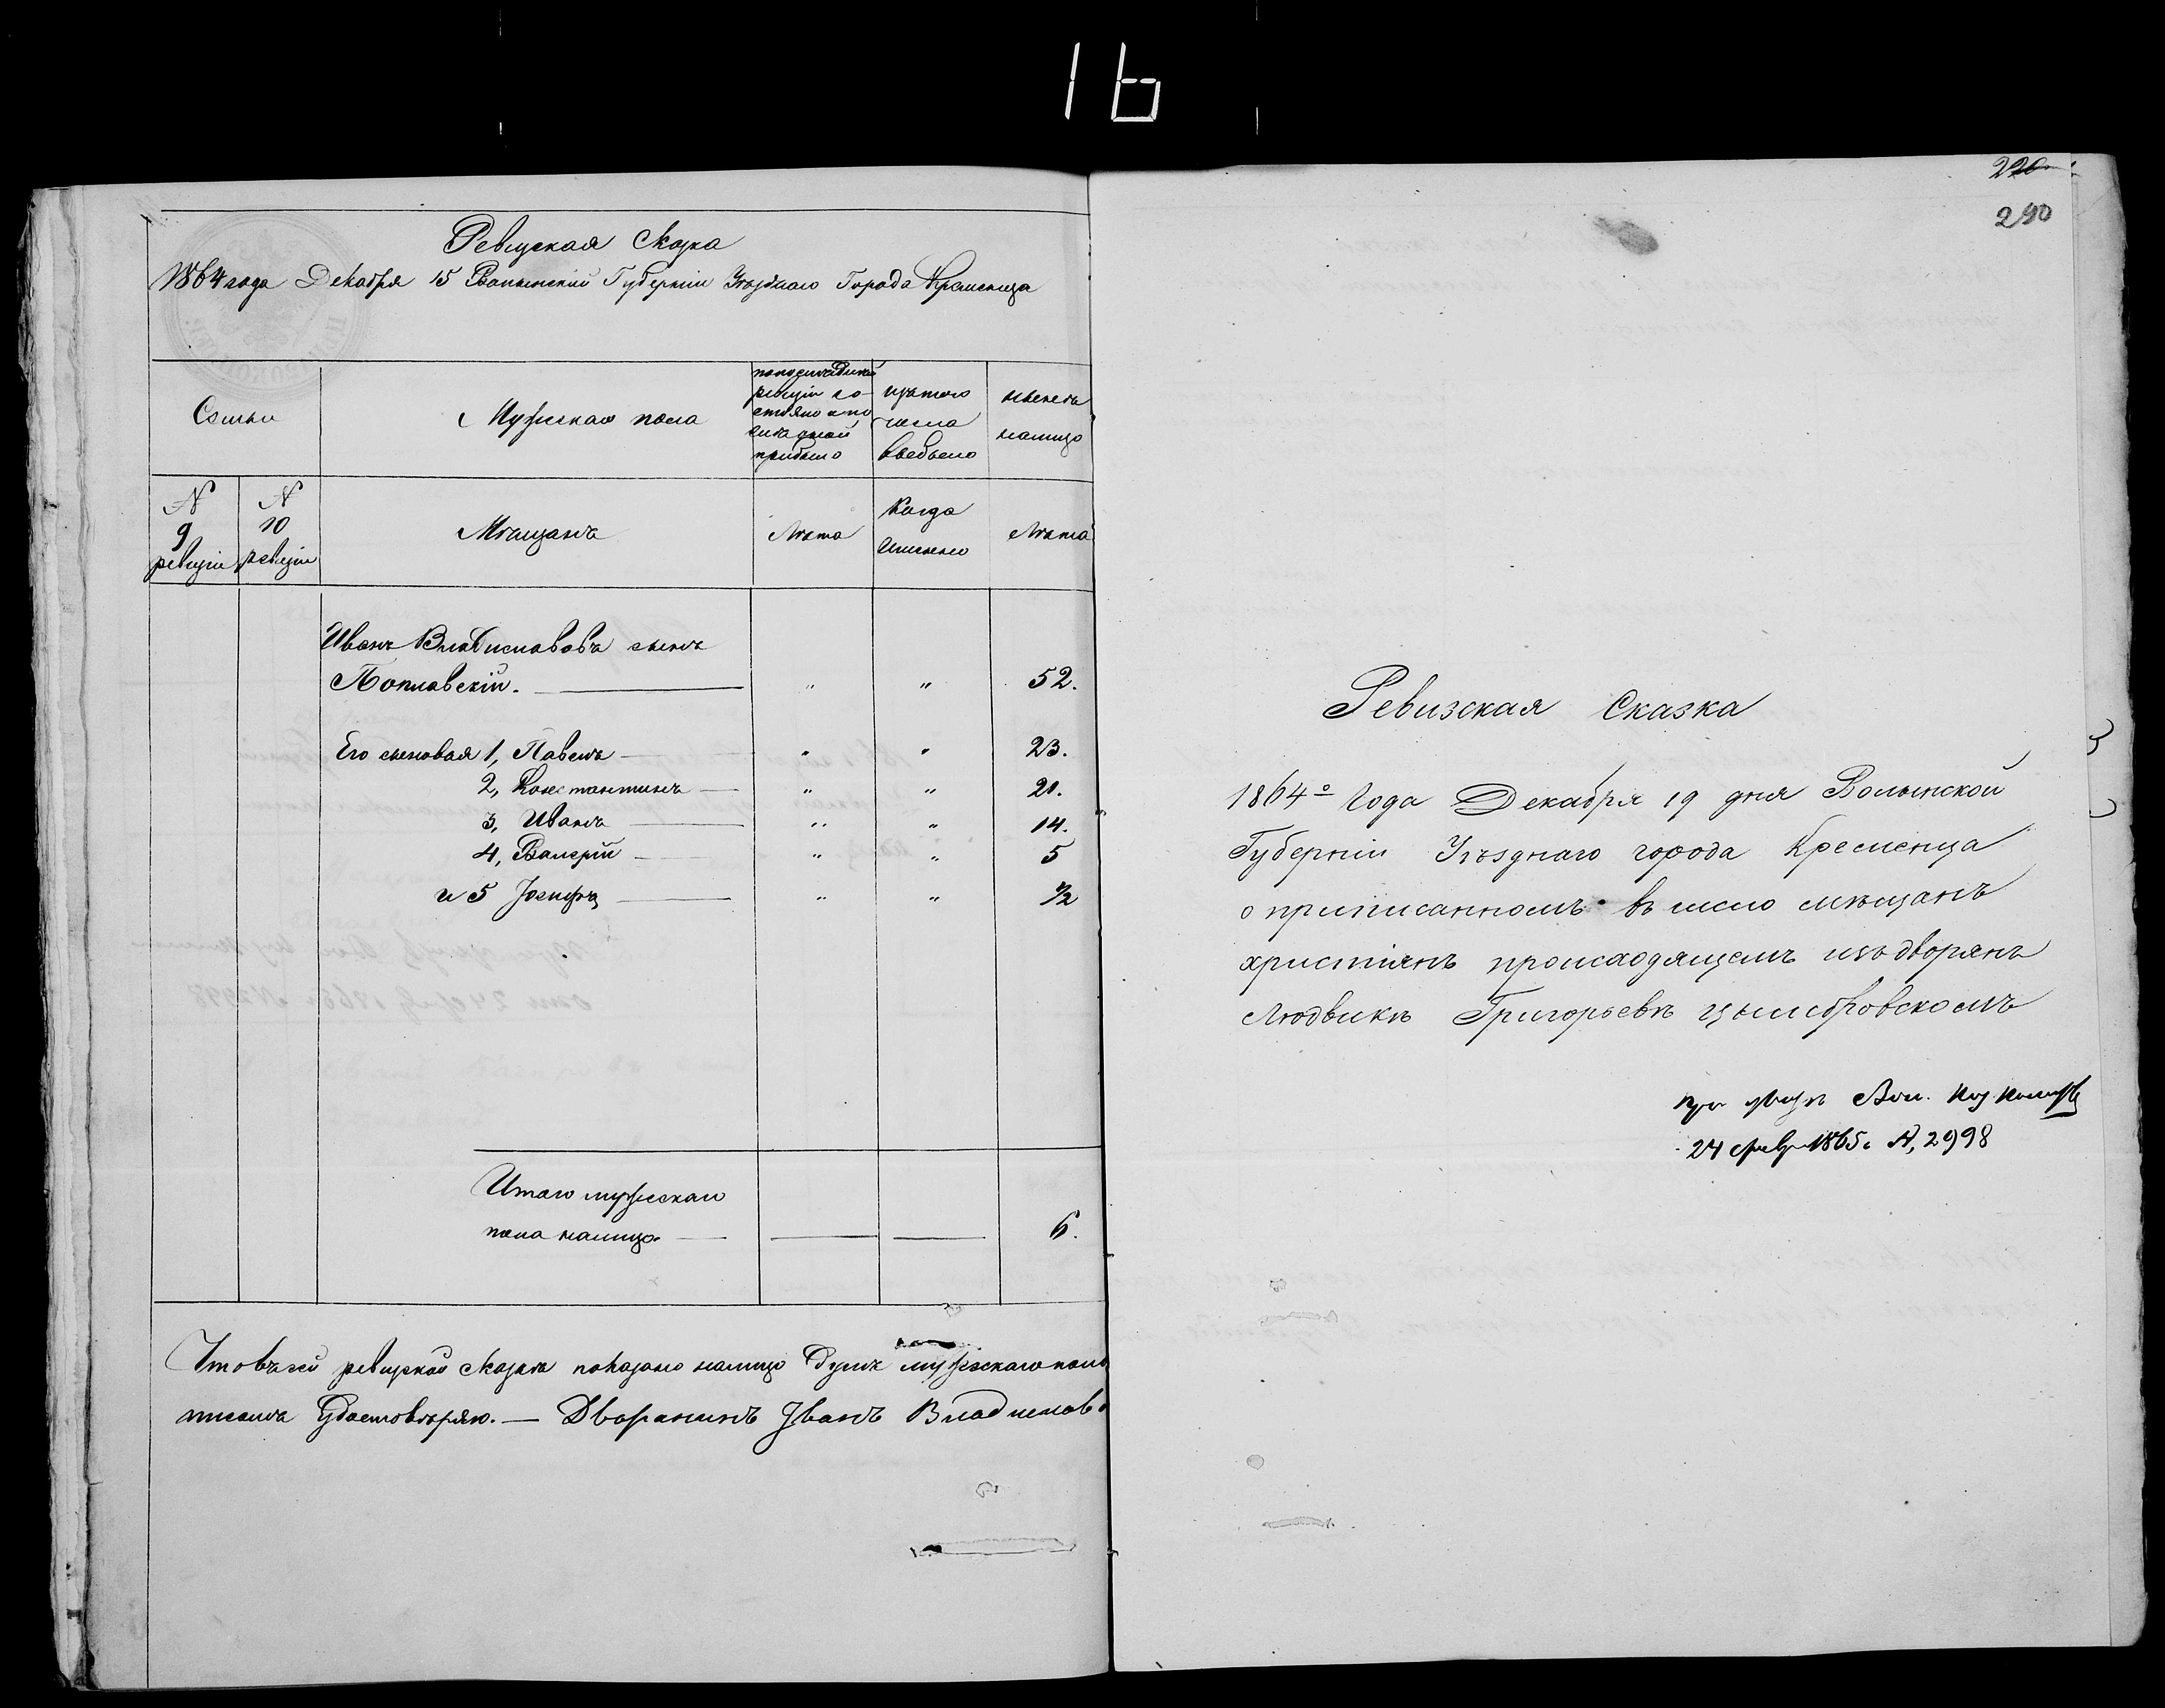 16
Ревизская Сказка
1864 года Декабря 15 Волынской Губернии Уѣзднаго Города Кременца
Семьи
Мужескаго пола
по последней
ревизіи со-
стояло и по
сле оной
прибыло
изъ того
числа
выбыло
нынѣ
налицо
N
9
ревизіи
N
10
ревизіи
Мѣщанъ
Лѣта
Когда
Именно
Лѣта
Иванъ Владиславовъ сынъ
Поплавскій. " " 52.
Его сыновья 1, Павелъ " " 23.
2, Константинъ " " 21.
3, Иванъ " " 14.
4, Валерій " " 5
и 5 Іосифъ " " 1/2
Итого мужескаго
пола налицо 6.
Что въ сей ревизской сказкѣ показано налицо душъ мужескаго пола
удостовѣряю. — Дворянинъ Іванъ Владиславо
220
290
Ревизская Сказка
1864го Года Декабря 19 дня Волынской
Губерніи Уѣзднаго города Кременца
о приписанномъ въ число мѣщанъ
христіянъ происходящемъ изъ дворянъ
Людвикѣ Григорьевѣ Цымбровскомъ
при указѣ Вол. Каз. Палаты
24 февр 1865 г. N, 2998